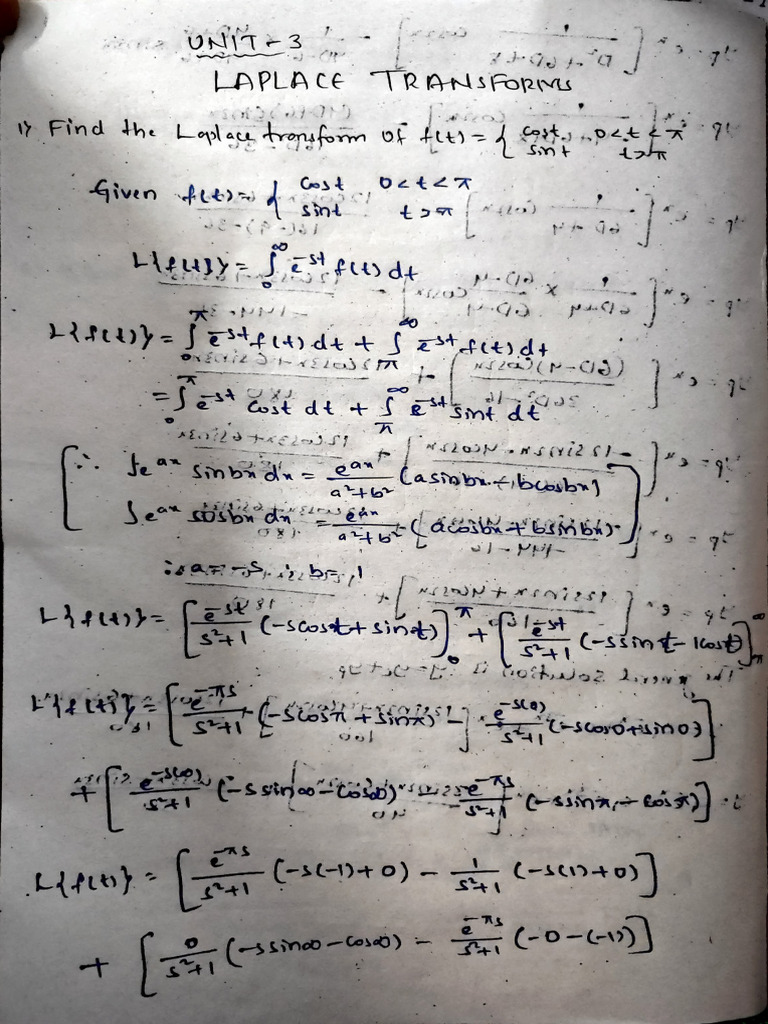 UNIT - 3
LAPLACE TRANSFORMS
1) Find the Laplace transform of f(t) = { cost, 0<t<π
sint t>π
Given f(t) = { cost 0<t<π
sint t>π
L{f(t)} = ∫₀^∞ e^-st f(t) dt
L{f(t)} = ∫₀^π e^-st f(t) dt + ∫π^∞ e^-st f(t) dt
= ∫₀^π e^-st cost dt + ∫π^∞ e^-st sint dt
[∵ ∫e^ax sinbx dx = e^ax/(a²+b²) (asinbx - bcosbx)
∫e^ax cosbx dx = e^ax/(a²+b²) (acosbx + bsinbx)]
∴ a = -s, b = 1
L{f(t)} = [e^-st/(s²+1) (-scost + sint)]₀^π + [e^-st/(s²+1) (-ssint - 1cost)]π^∞
L{f(t)} = [e^-πs/(s²+1) (-scosπ + sinπ) - e^-s(0)/(s²+1) (-scos0 + sin0)]
+ [e^-s(∞)/(s²+1) (-ssin∞ - cos∞) - e^-πs/(s²+1) (-ssinπ - cosπ)]
L{f(t)} = [e^-πs/(s²+1) (-s(-1)+0) - 1/(s²+1) (-s(1)+0)]
+ [0/(s²+1) (-ssin∞ - cos∞) - e^-πs/(s²+1) (-0-(-1))]